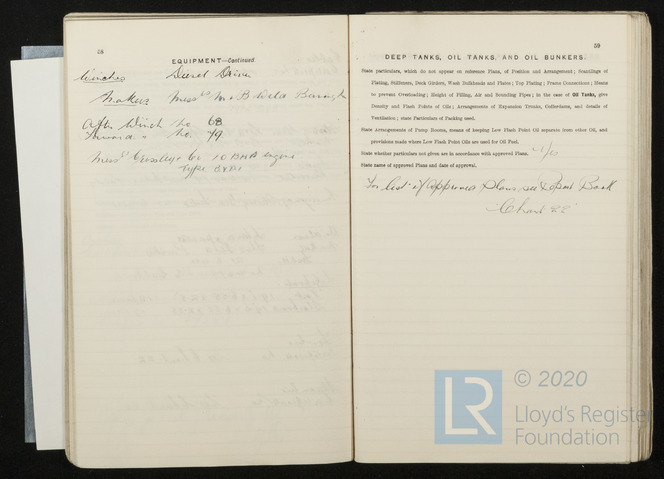 58
EQUIPMENT—Continued.
Winches Diesel Driven
Makers Mess
After Winch No. 68
Forward " No. 79
Mess Crossley Co 10 BHP engine
Type
59
DEEP TANKS, OIL TANKS, AND OIL BUNKERS.
State particulars, which do not appear on reference Plans, of Position and Arrangement; Scantlings of
Plating, Stiffeners, Deck Girders, Wash Bulkheads and Plates; Top Plating; Frame Connections; Means
to prevent Overloading; Height of Filling, Air and Sounding Pipes; in the case of Oil Tanks, give
Density and Flash Points of Oils; Arrangements of Expansion Trunks, Cofferdams, and details of
Ventilation; state Particulars of Packing used.
State Arrangements of Pump Rooms, means of keeping Low Flash Point Oil separate from other Oil, and
provisions made where Low Flash Point Oils are used for Oil Fuel.
State whether particulars not given are in accordance with approved Plans.
State name of approval Plans and date of approval.
For list of approved plans see Report Book
LR
© 2020
Lloyd's Register
Foundation